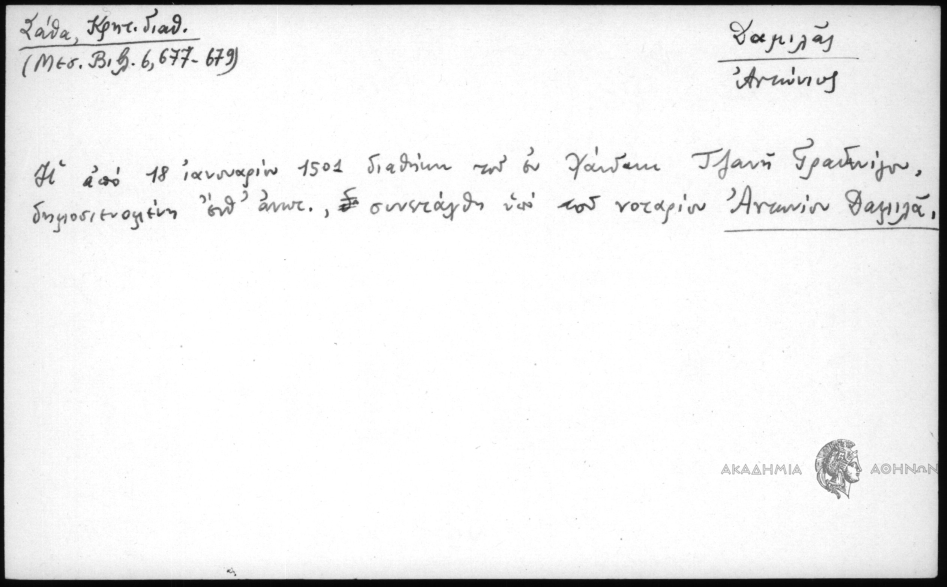 Σάθα, Κρητ. διαθ.
(Μεσ. Βιβλ. 6, 677-679)
Δαμιλᾶς
Ἀντώνιος
Ἡ ἀπό 18 ἰανουαρίου 1501 διαθήκη τοῦ ἐν Χάνδακι Τζανῆ Γραδενίγου,
δημοσιευομένη ἔνθ' ἀνωτ., συνετάχθη ὑπό τοῦ νοταρίου Ἀντωνίου Δαμιλᾶ.
ΑΚΑΔΗΜΙΑ ΑΘΗΝΩΝ